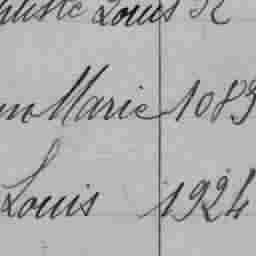 ptiste Louis
Marie 1083
Louis 1924